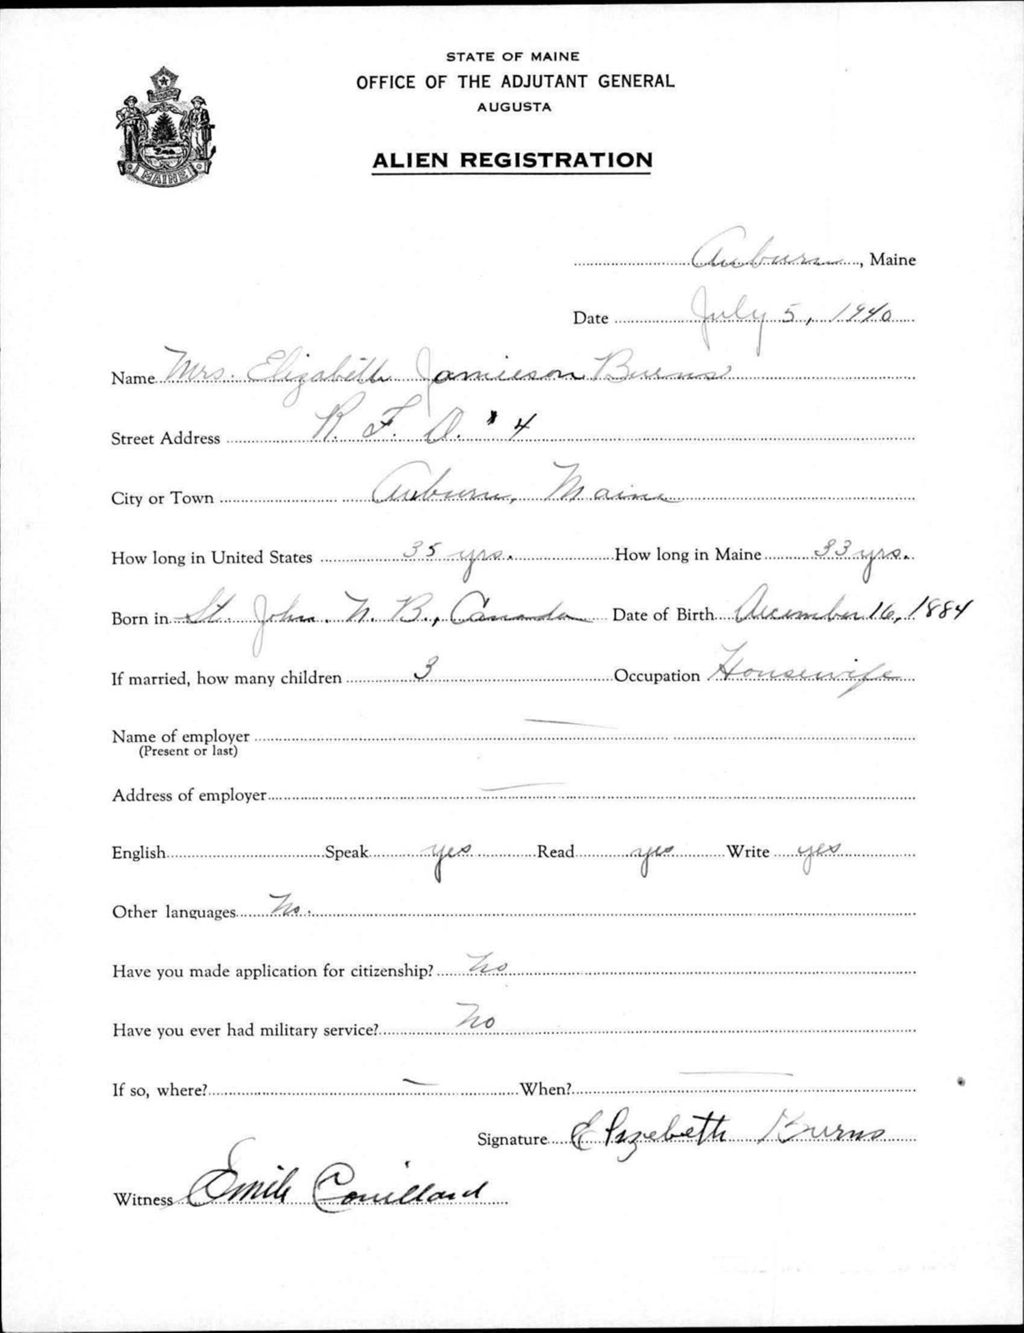 STATE OF MAINE
OFFICE OF THE ADJUTANT GENERAL
AUGUSTA
ALIEN REGISTRATION
MAINE
Auburn, Maine
Date July 5, 1940
Name Mrs. Elizabeth Jamieson Burns
Street Address R. F. D. #4
City or Town Auburn, Maine
How long in United States 35 yrs. How long in Maine 33 yrs.
Born in St. John. N. B., Canada Date of Birth December 16, 1884
If married, how many children 3 Occupation Housewife
Name of employer —
(Present or last)
Address of employer —
English Speak yes Read yes Write yes
Other languages No.
Have you made application for citizenship? No
Have you ever had military service? No
If so, where? — When? —
Signature Elizebeth Burns
Witness Emile Couillard